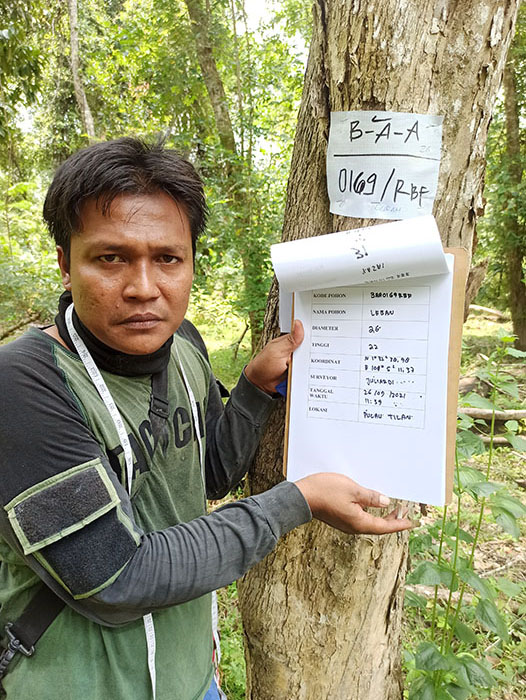 B-A-A
0169/RBF
KODE POHON BAA0169RBF
NAMA POHON LEBAN
DIAMETER 26
TINGGI 22
KOORDINAT N 1° 32'
E 108° 5'
SURVEYOR JULIARDI
TANGGAL 26/09/2021
WAKTU 11:39
LOKASI PULAU TILAN
TAC